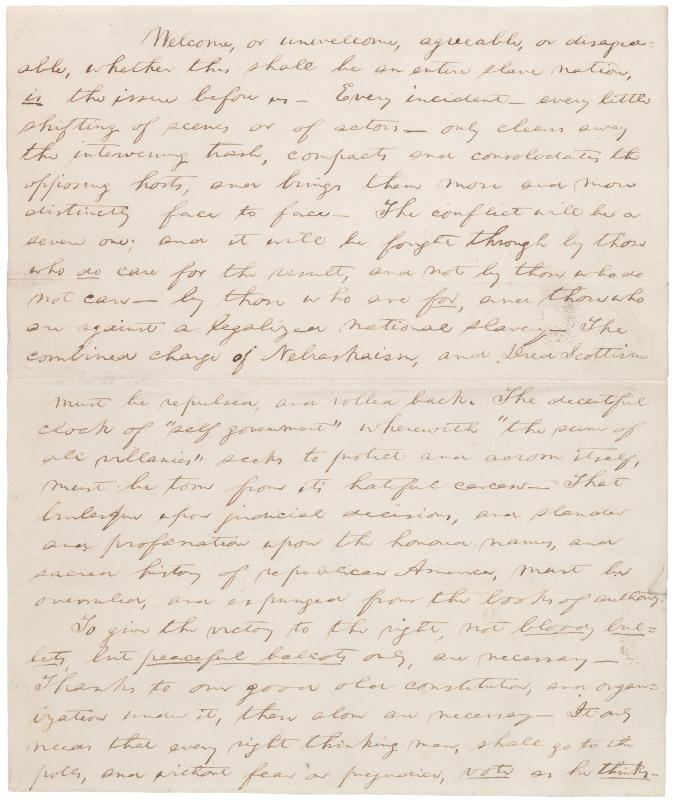 Welcome, or unwelcome, agreeable, or disagree=
able, whether this shall be an entire slave nation,
is the issue before us— Every incident— every little
shifting of scenes or of actors— only clears away
the intervening trash, compacts and consolodates the
opposing hosts, and brings them more and more
distinctly face to face— The conflict will be a
severe one; and it will be fought through by those
who do care for the result, and not by those who do
not care— by those who are for, and those who
are against a legalized national slavery— The
combined charge of Nebraskaism, and Dred Scottism
must be repulsed, and rolled back. The deceitful
cloak of "self government" wherewith "the sum of
all villanies" seeks to protect and adorn itself,
must be torn from it's hateful carcass— That
burlesque upon judicial decisions, and slander
and profanation upon the honored names, and
sacred history of republican America, must be
overruled, and expunged from the books of authority.
To give the victory to the right, not bloody bul=
lets, but peaceful ballots only, are necessary—
Thanks to our good old constitution, and organ=
ization under it, these alone are necessary— It only
needs that every right thinking man, shall go to the
polls, and without fear or prejudice, vote as he thinks—